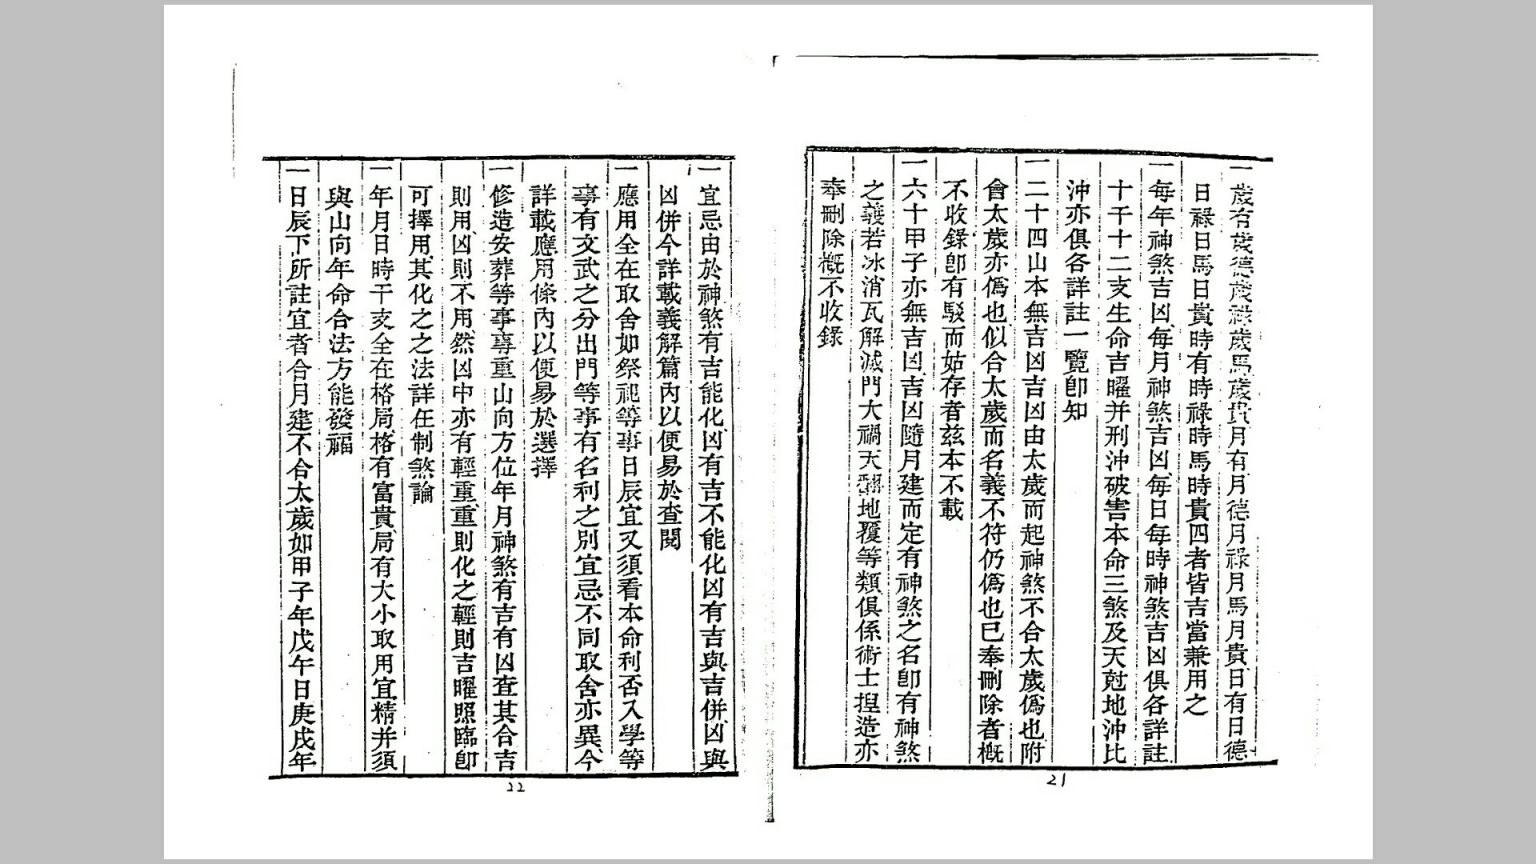 一歲有歲德歲祿歲馬歲貴月有月德月祿月馬月貴日有日德
日祿日馬日貴時有時祿時馬時貴四者皆吉當兼用之
一每年神煞吉凶每月神煞吉凶每日每時神煞吉凶俱各詳註
十干十二支生命吉曜并刑沖破害本命三煞及天尅地沖比
沖亦俱各詳註一覽卽知
一二十四山本無吉凶吉凶由太歲而起神煞不合太歲僞也附
會太歲亦僞也似合太歲而名義不符仍僞也已奉刪除者槪
不收錄卽有駁而姑存者茲本不載
一六十甲子亦無吉凶吉凶隨月建而定有神煞之名卽有神煞
之義若冰消瓦解滅門大禍天翻地覆等類俱係術士揑造亦
奉刪除槪不收錄
21
一宜忌由於神煞有吉能化凶有吉不能化凶有吉與吉併凶與
凶併今詳載義解篇內以便易於查閱
一應用全在取舍如祭祀等事日辰宜又須看本命利否入學等
事有文武之分出門等事有名利之別宜忌不同取舍亦異今
詳載應用條內以便易於選擇
一修造安葬等事專重山向方位年月神煞有吉有凶查其合吉
則用凶則不用然凶中亦有輕重重則化之輕則吉曜照臨卽
可擇用其化之之法詳在制煞論
一年月日時干支全在格局格有富貴局有大小取用宜精并須
與山向年命合法方能發福
一日辰下所註宜者合月建不合太歲如甲子年戊午日庚戌年
22